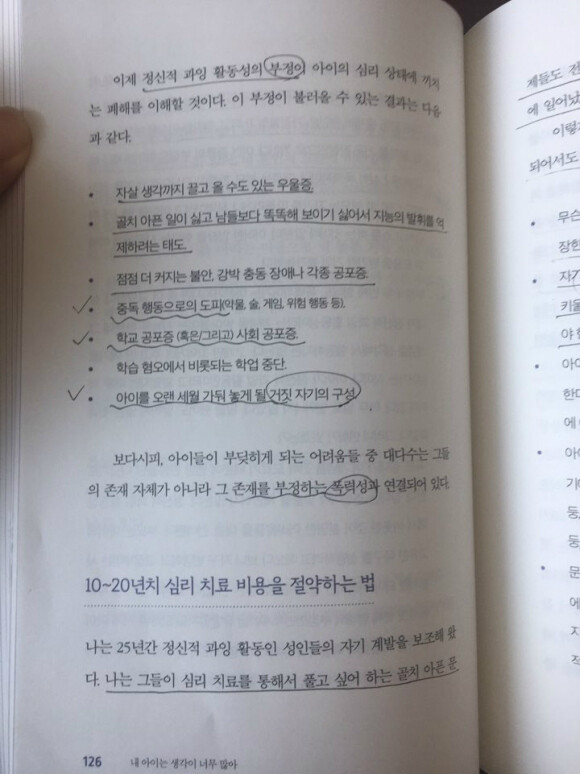 이제 정신적 과잉 활동성의 부정이 아이의 심리 상태에 끼치
는 폐해를 이해할 것이다. 이 부정이 불러올 수 있는 결과는 다음
과 같다.
• 자살 생각까지 끌고 올 수도 있는 우울증.
• 골치 아픈 일이 싫고 남들보다 똑똑해 보이기 싫어서 지능의 발휘를 억
제하려는 태도.
• 점점 더 커지는 불안, 강박 충동 장애나 각종 공포증.
• 중독 행동으로의 도피(약물, 술, 게임, 위험 행동 등).
• 학교 공포증 (혹은/그리고) 사회 공포증.
• 학습 혐오에서 비롯되는 학업 중단.
• 아이를 오랜 세월 가둬 놓게 될 거짓 자기의 구성.
보다시피, 아이들이 부딪히게 되는 어려움들 중 대다수는 그들
의 존재 자체가 아니라 그 존재를 부정하는 폭력성과 연결되어 있다.
10~20년치 심리 치료 비용을 절약하는 법
나는 25년간 정신적 과잉 활동인 성인들의 자기 계발을 보조해 왔
다. 나는 그들이 심리 치료를 통해서 풀고 싶어 하는 골치 아픈 문
126 내 아이는 생각이 너무 많아
제들도 전
에 일어났
이렇
되어서도
• 무슨
장한
• 자기
키울
야 한
• 아이
한다
에
• 아이
기
등,
등
• 문
에
지
직